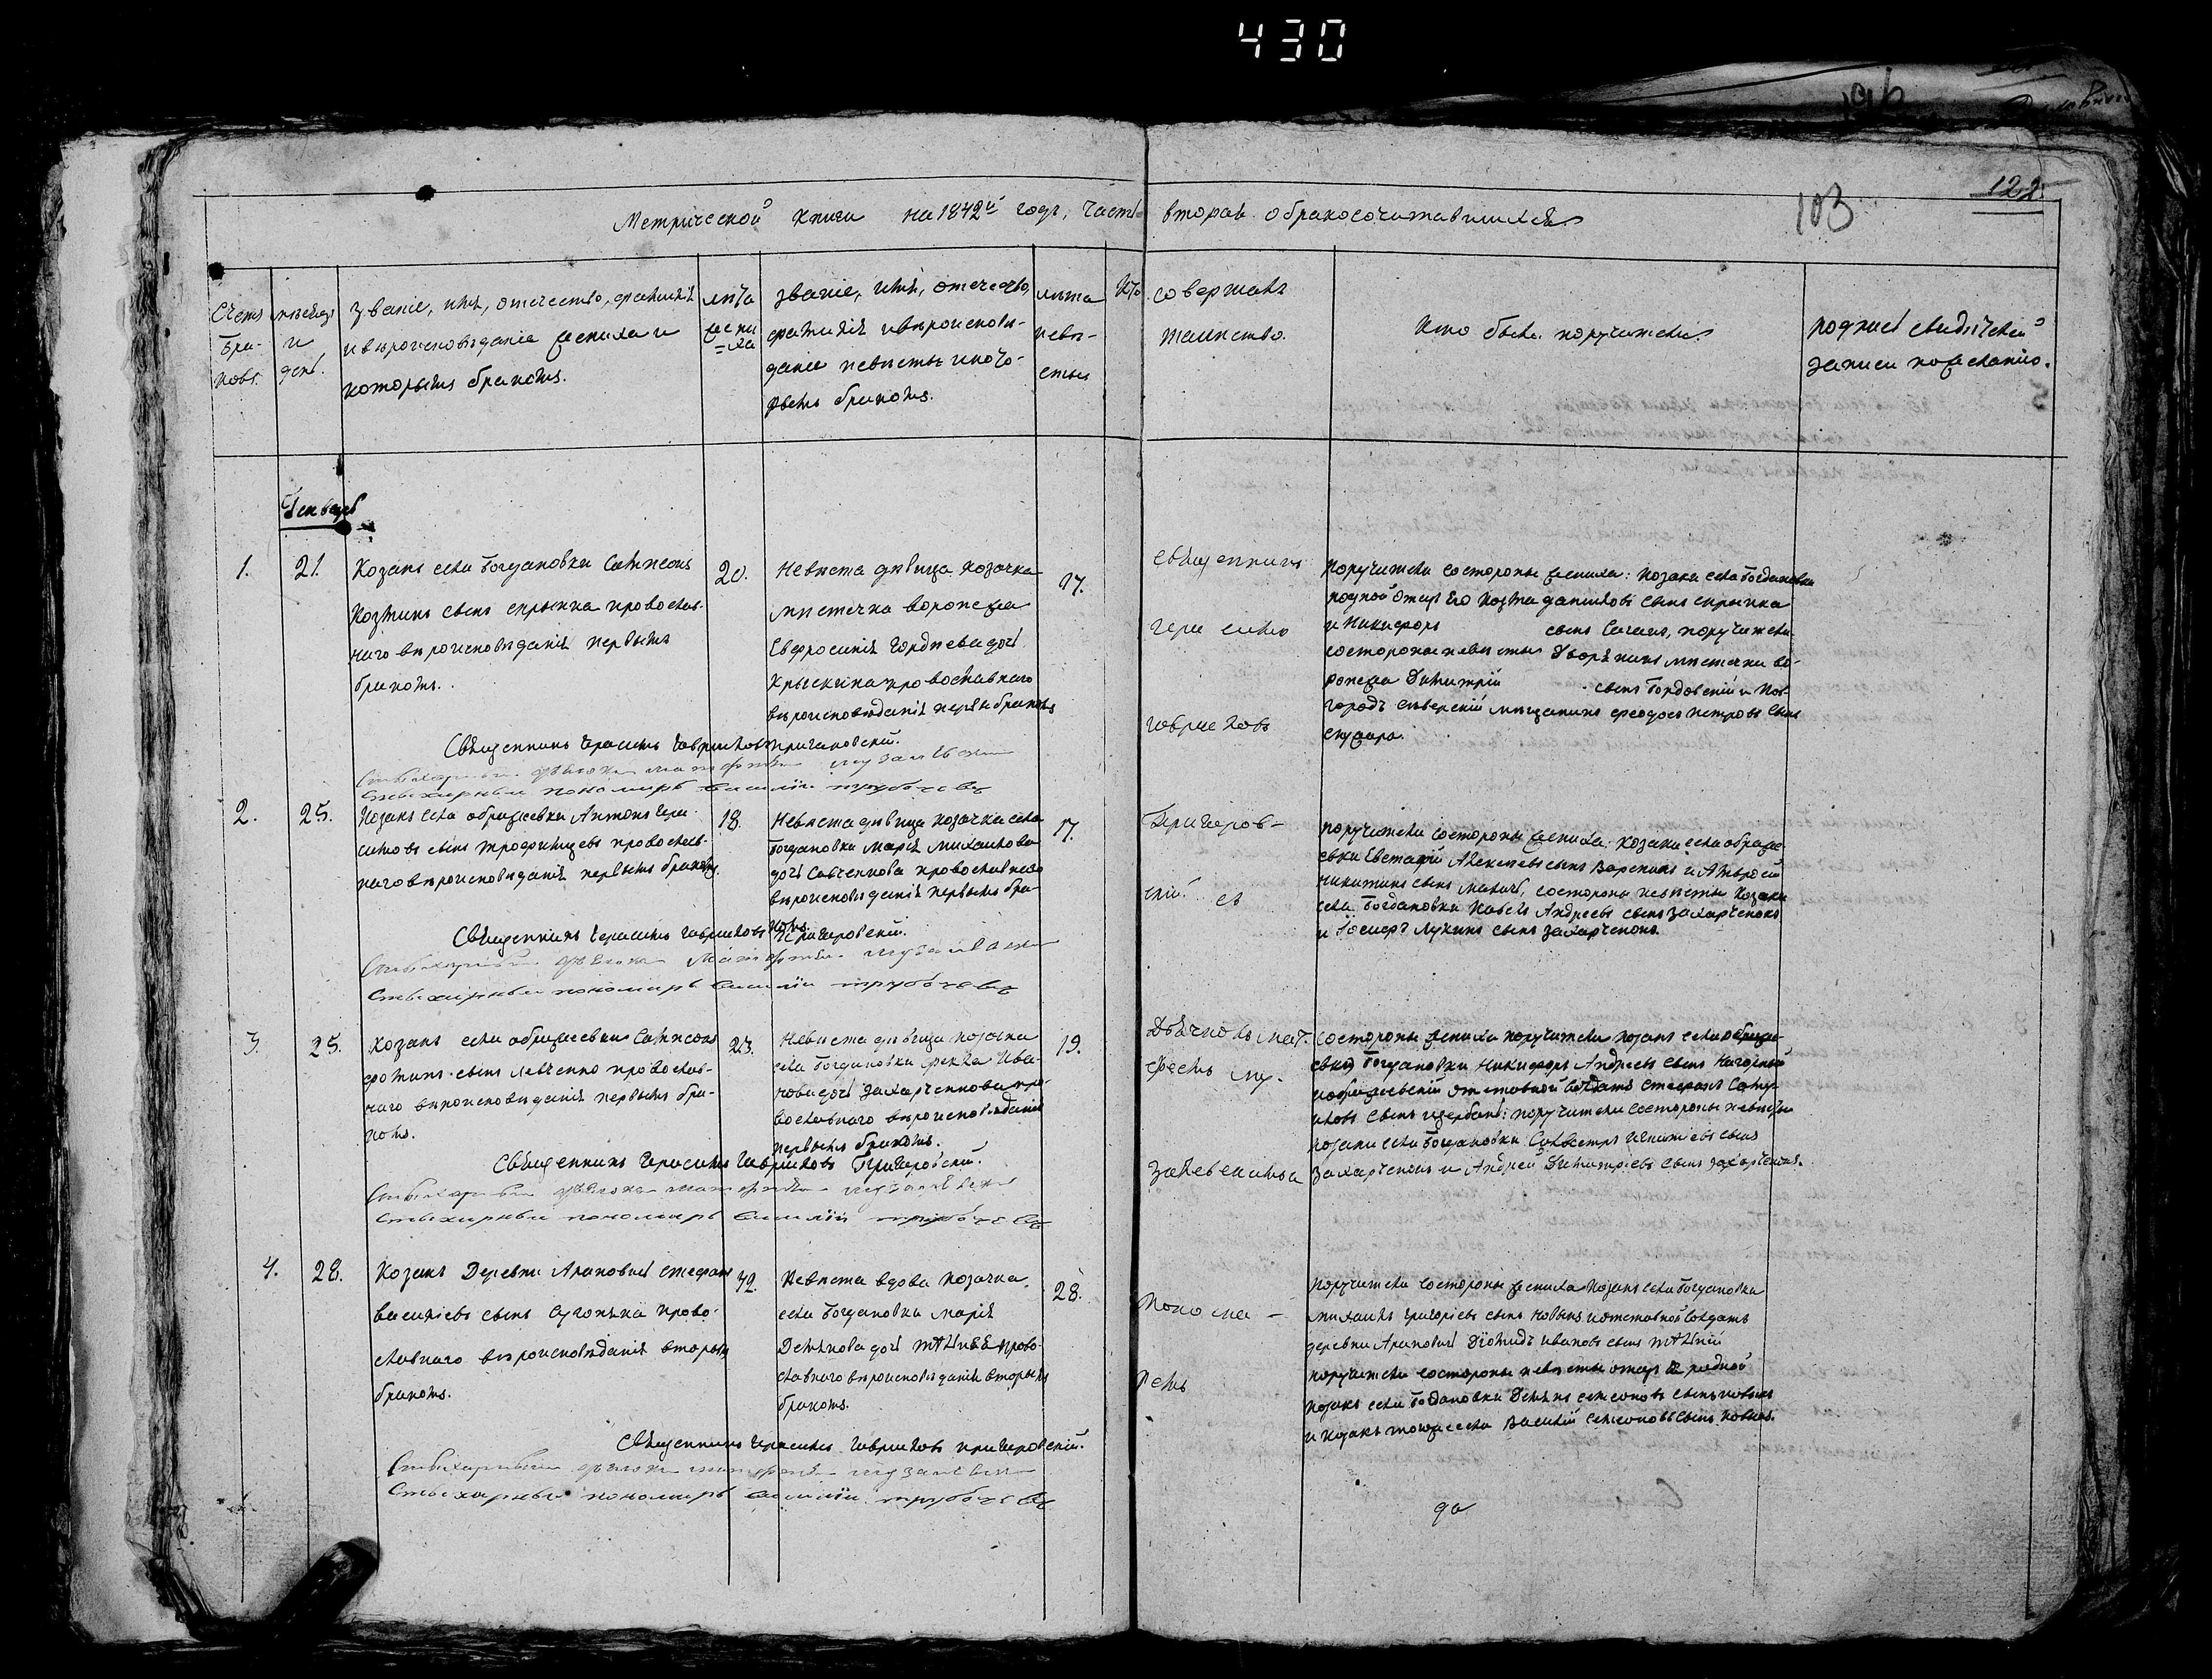 430
196
122.
103
Метрической книги на 1842й годъ, часть вторая о бракосочитавшихся.
Счетъ бра-ковъ.
мѣсяцъ и день.
Званіе, имя, отечество, фамилія
и вѣроисповѣданіе жениха и
которымъ бракомъ.
лѣта жени=ха
званіе, имя, отечество,
фамилія и вѣроисповѣ-
даніе невѣсты и кото-
рымъ бракомъ.
лѣта невѣ-сты
Кто совершалъ
таинство.
Кто были поручители.
подписъ свидѣтелей
записи по желанію.
Генварь
1.
21.
Козакъ села Богдановки Сампсонъ
Козминъ сынъ скрыпка православ-
наго вѣроисповѣданія первымъ
бракомъ.
20.
Невѣста дѣвица козачка
мѣстечка воронежа
Евфросинія Гордѣева дочь
Крыскина православнаго
вѣроисповѣданія первы бракомъ
17.
священникъ
Гера симъ
гаврие ловъ
поручители состороны жениха: козаки села Богдановки
родной отецъ Его Козма даниловъ сынъ скрыпка
и Никифоръ сынъ поручители
состороны невѣсты Дворянинъ мѣстечка во-
ронежа Димитрій сынъ Гордовскій и Нов-
городъ сѣверскій мѣщанинъ феодосъ петровъ сынъ
Священникъ Герасимъ Гавриловъ пригаровскій.
Стыхарный пономарь василій трубочевъ
2.
25.
Козакъ села ображеевки Антонъ Гера-
симовъ сынъ трофименцевъ православ-
наго вѣроисповѣданія первымъ бракомъ.
18.
Невѣста дѣвица козачка села
Богдановки марія михаилова
дочь Савченкова православнаго
вѣроисповѣданія первымъ бра-
комъ.
17.
Пригоров-
скій съ
поручители состороны жениха: козаки села ображе-
евки Евстафій Алексѣевъ сынъ Вареникъ и Амвросій
никитинъ сынъ состороны невѣсты козаки
села Богдановки Павелъ Андреевъ сынъ захарченокъ
и Іосифъ Лукинъ сынъ захарченокъ.
Священникъ Герасимъ Гавриловъ Пригоровскій.
Стыхарный пономарь василій трубочевъ
3.
25.
козакъ села ображеевки Сампсонъ
фоминъ сынъ левченко православ-
наго вѣроисповѣданія первымъ бра-
комъ.
23.
Невѣста дѣвица козачка
села Богдановки фекла Ива-
нова дочь захарченкова пра-
вославнаго вѣроисповѣданія
первымъ бракомъ.
19.
Дьячкомъ мат-
феемъ му-
залевскимъ и
состороны жениха поручители козакъ села
Богдановки Никифоръ Андреевъ сынъ
ображеевскій отставной солдатъ стефанъ
сынъ щербакъ: поручители состороны невѣсты
козаки села Богдановки Силвестръ Игнатіевъ сынъ
Захарченокъ и Андрей Димитріевъ сынъ захарченокъ.
Священникъ Герасимъ Гавриловъ Пригоровскій.
Стыхарный пономарь василій трубочевъ
4.
28.
Козакъ Деревни Араповичъ стефанъ
василіевъ сынъ право-
славнаго вѣроисповѣданія вторымъ
бракомъ.
42.
Невѣста вдова козачка
села Богдановки марія
Демянова дочь право-
славнаго вѣроисповѣданія вторымъ
бракомъ.
28.
поно ма-
ремъ
поручители состороны жениха козакъ села Богдановки
михаилъ григоріевъ сынъ новикъ и отставной солдатъ
деревни Араповичъ Діомидъ ивановъ сынъ
поручители состороны невѣсты отецъ родной
козакъ села Богдановки Демянъ семеоновъ сынъ новикъ
и козакъ тогоже села Василій семеоновъ сынъ новикъ.
Священникъ Герасимъ Гавриловъ пригоровскій.
Стыхарный пономарь василій трубочевъ